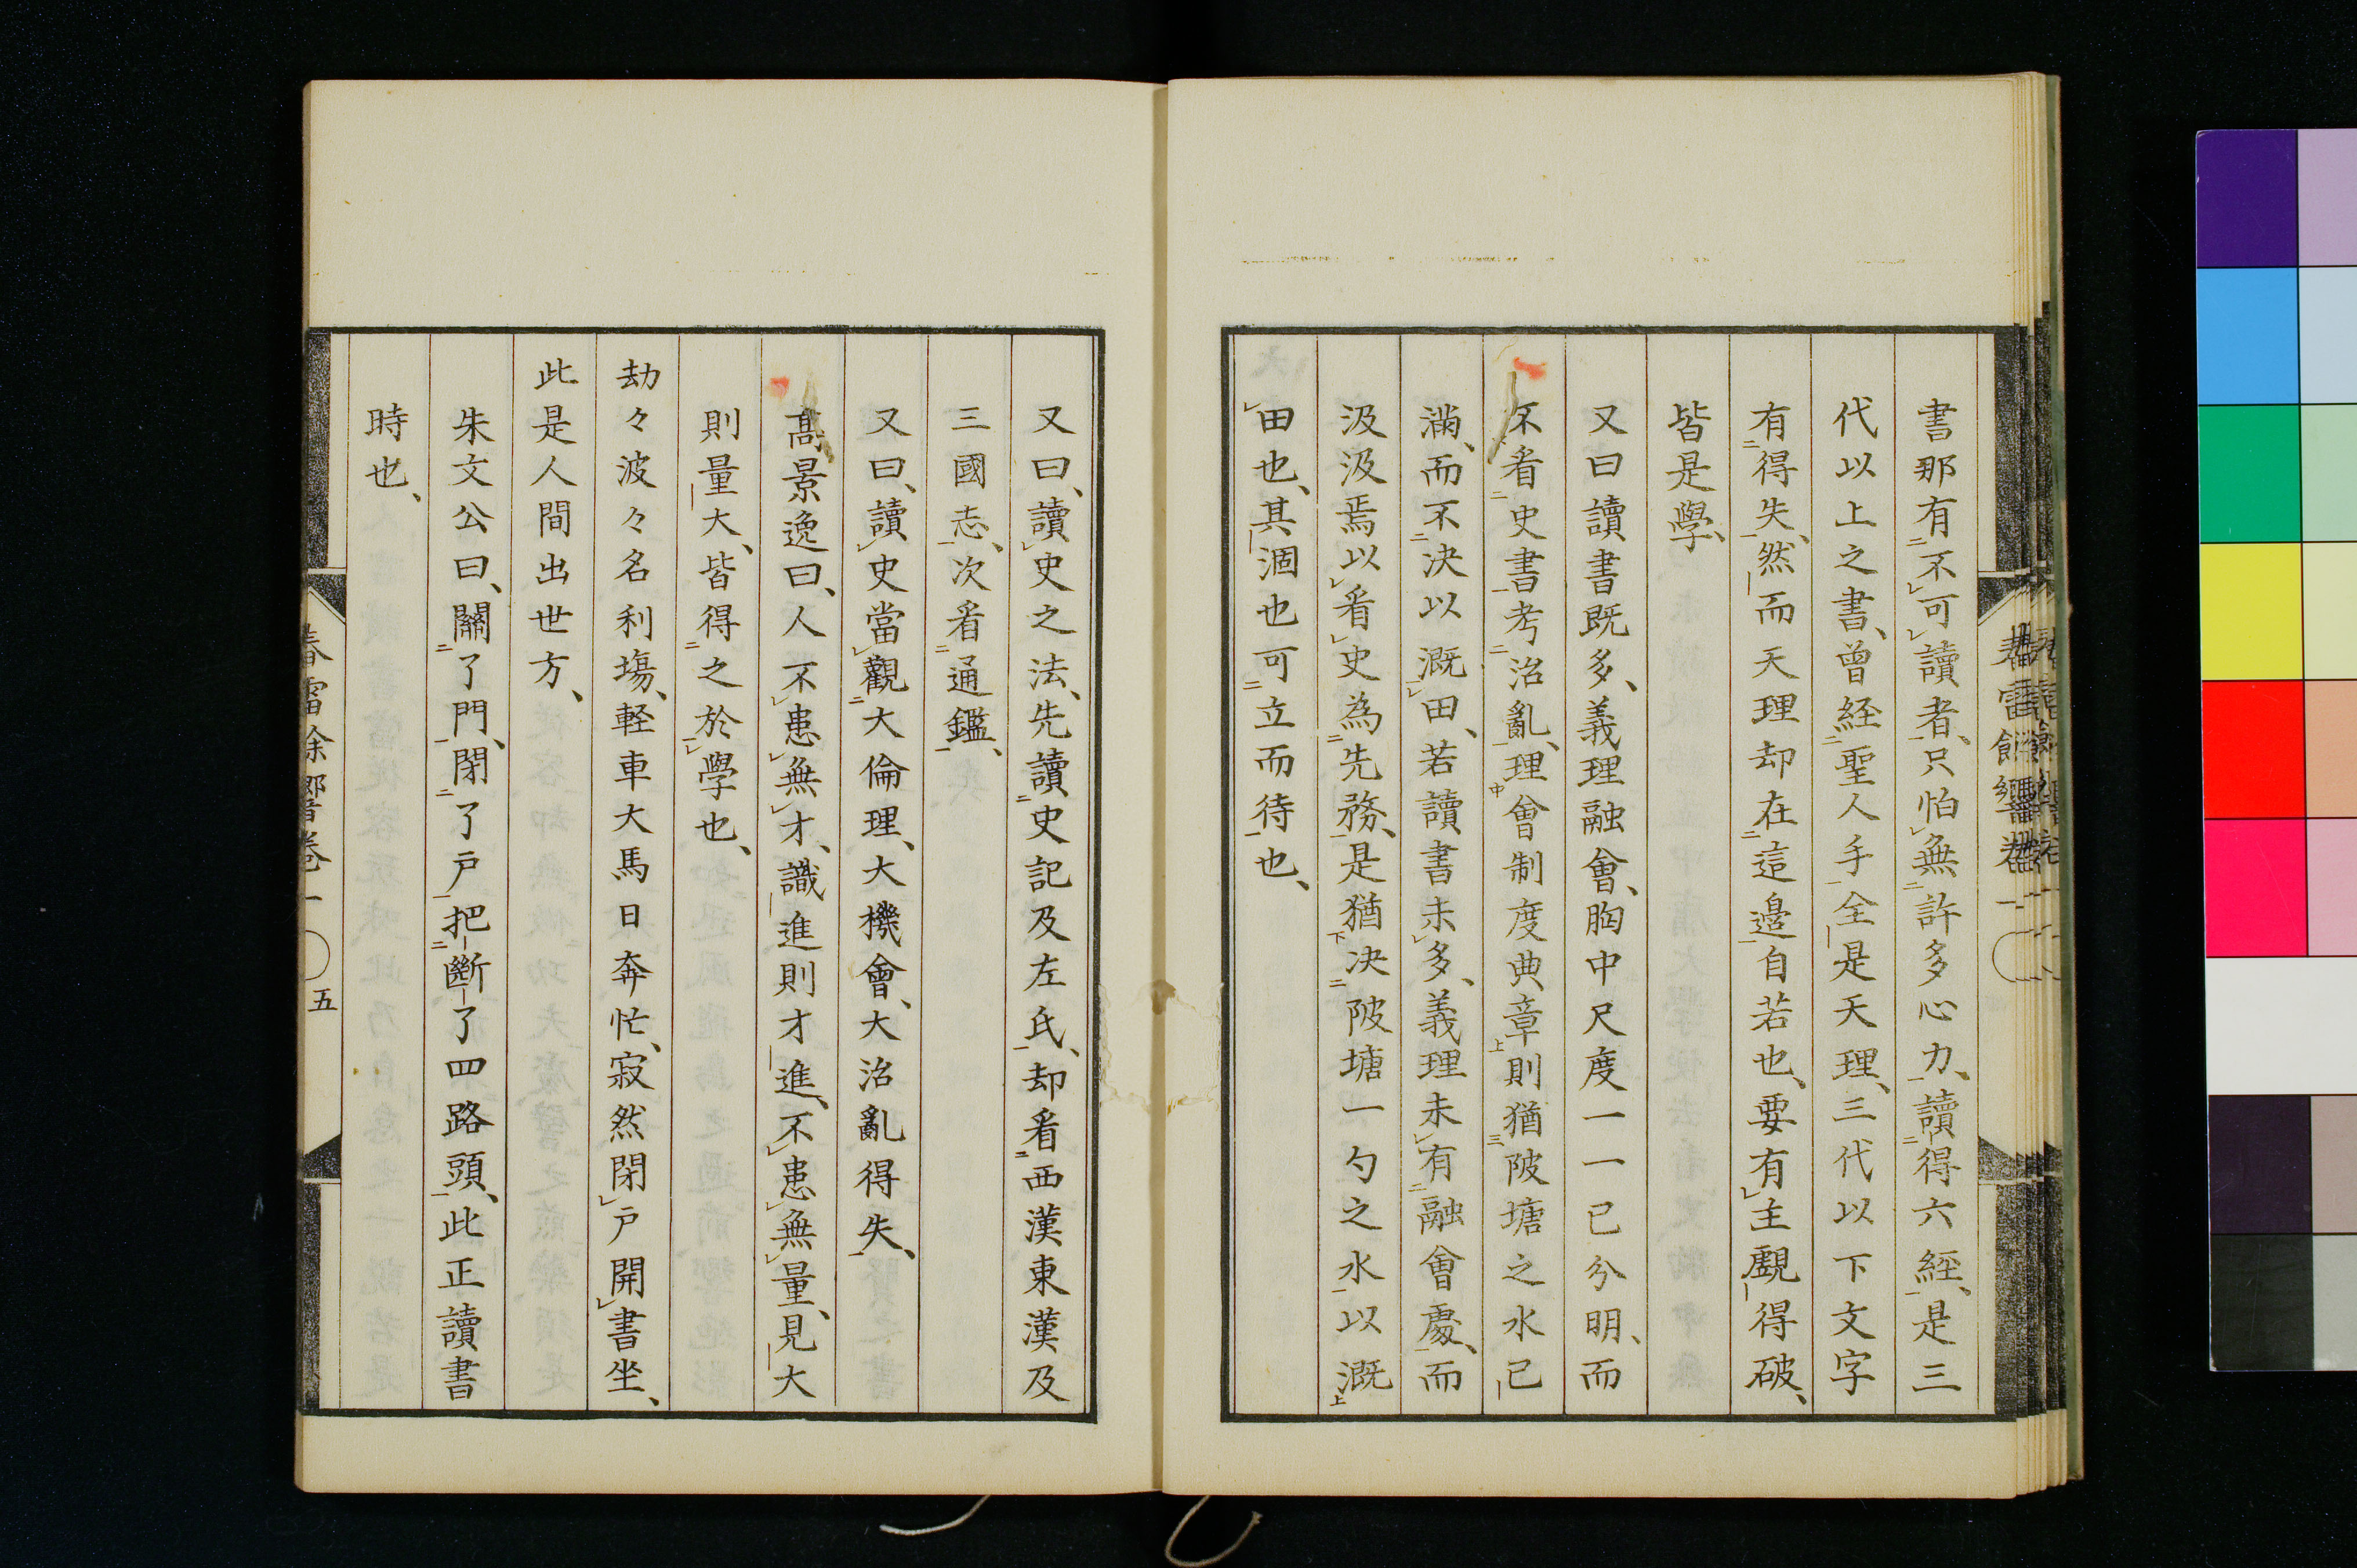 書那有不可讀者、只怕無許多心力、讀得六經、是三
代以上之書、曾経聖人手全是天理、三代以下文字
有得失、然而天理却在這邉自若也、要有主覷得破、
皆是學、
又曰讀書既多、義理融會、胸中尺度一一已分明、而
不看史書考治亂、理會制度典章則猶陂塘之水已
滿、而不決以溉田、若讀書未多、義理未有融會處、而
汲汲焉以看史為先務、是猶决陂塘一勺之水以溉
田也、其涸也可立而待也、
又曰、讀史之法、先讀史記及左氏、却看西漢東漢及
三國志、次看通鑑、
又曰、讀史當觀大倫理、大機會、大治亂得失、
髙景逸曰、人不患無才、識進則才進、不患無量、見大
則量大、皆得之於學也、
劫々波々名利塲、軽車大馬日奔忙、寂然閉戸開書坐、
此是人間出世方、
朱文公曰、關了門、閉了戸把斷了四路頭、此正讀書
時也、
春雷餘響卷一
五